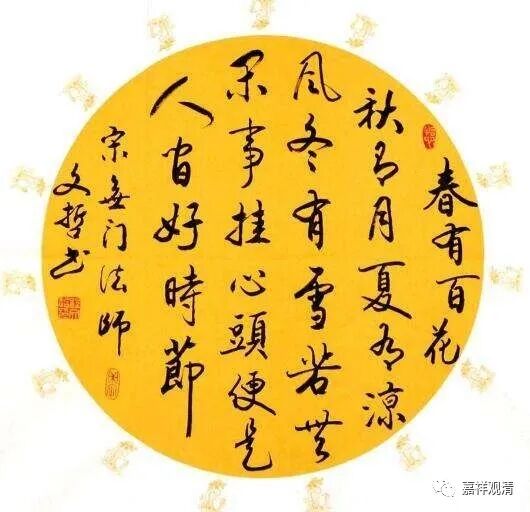 春有百花
秋有月夏有涼
风冬有雪若無
闲事挂心頭便是
人间好時節
宋無门法師
文哲书
嘉祥观清